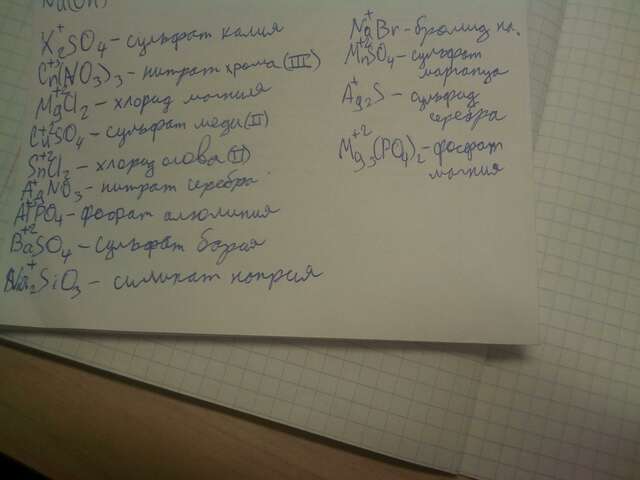 K₂⁺SO₄ – сульфат калия
Cr⁺³(NO₃)₃ – нитрат хрома (III)
Mg⁺²Cl₂ – хлорид магния
Cu⁺²SO₄ – сульфат меди (II)
Sn⁺²Cl₂ – хлорид олова (II)
Ag⁺NO₃ – нитрат серебра
AlPO₄ – фосфат алюминия
Ba⁺²SO₄ – сульфат бария
Na₂⁺SiO₃ – силикат натрия
Na⁺Br – бромид на.
Mn⁺²SO₄ – сульфат
марганца
Ag₂⁺S – сульфид
серебра
Mg₃⁺²(PO₄)₂ – фосфат
магния